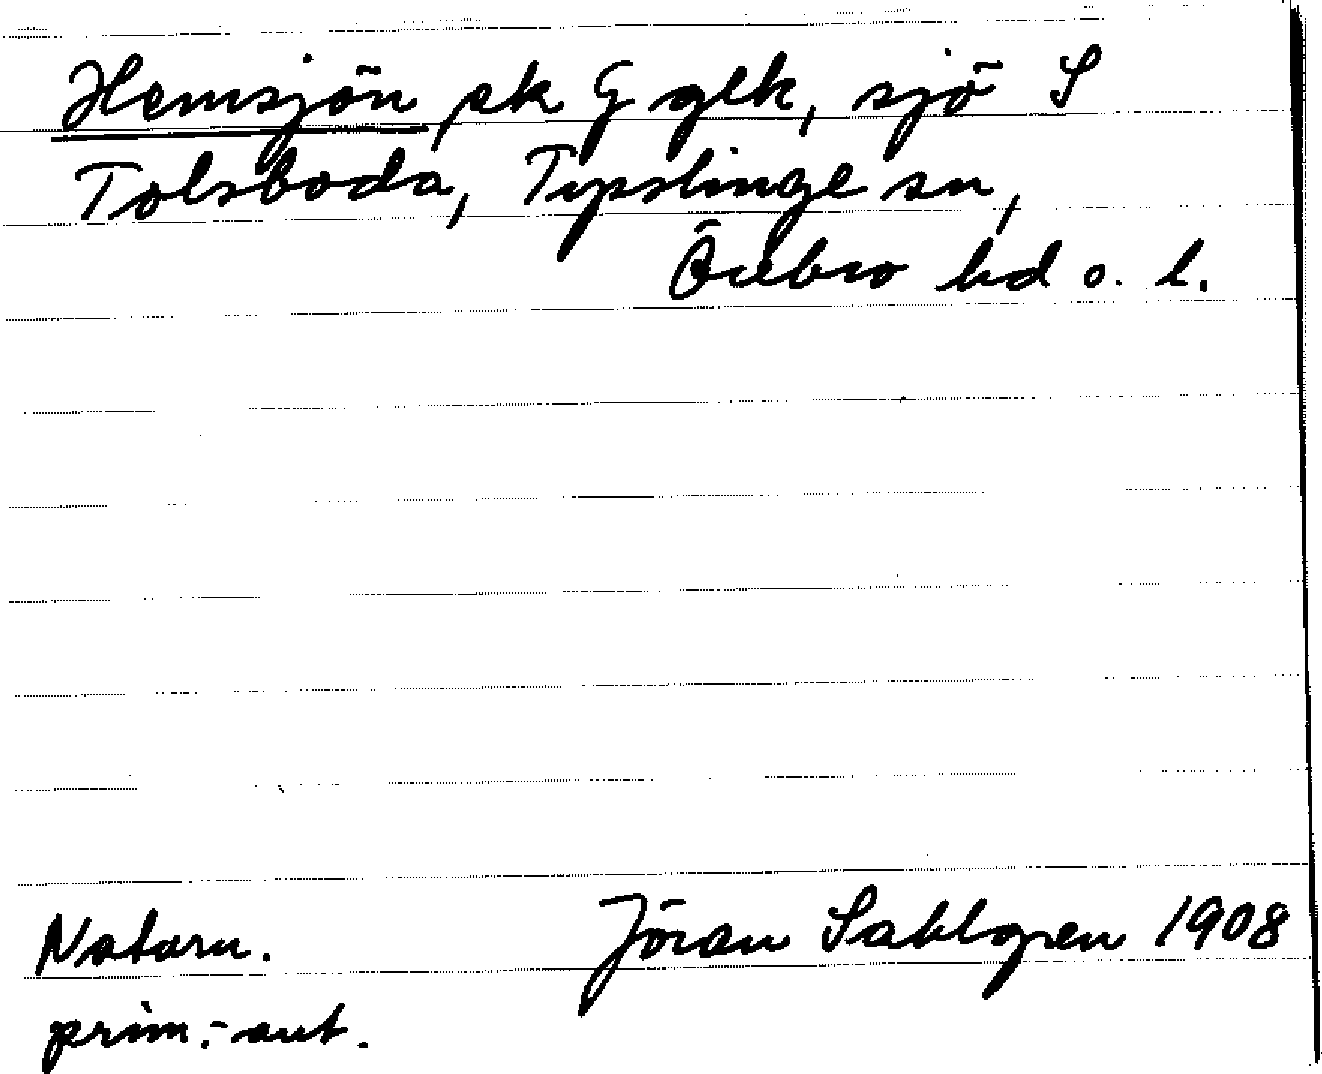 Hemsjön, ek G glk, sjö S
Tolsboda, Tysslinge sn,
Örebro hd o. l.
Natarn. Jöran Sahlgren 1908
prim.-ant.